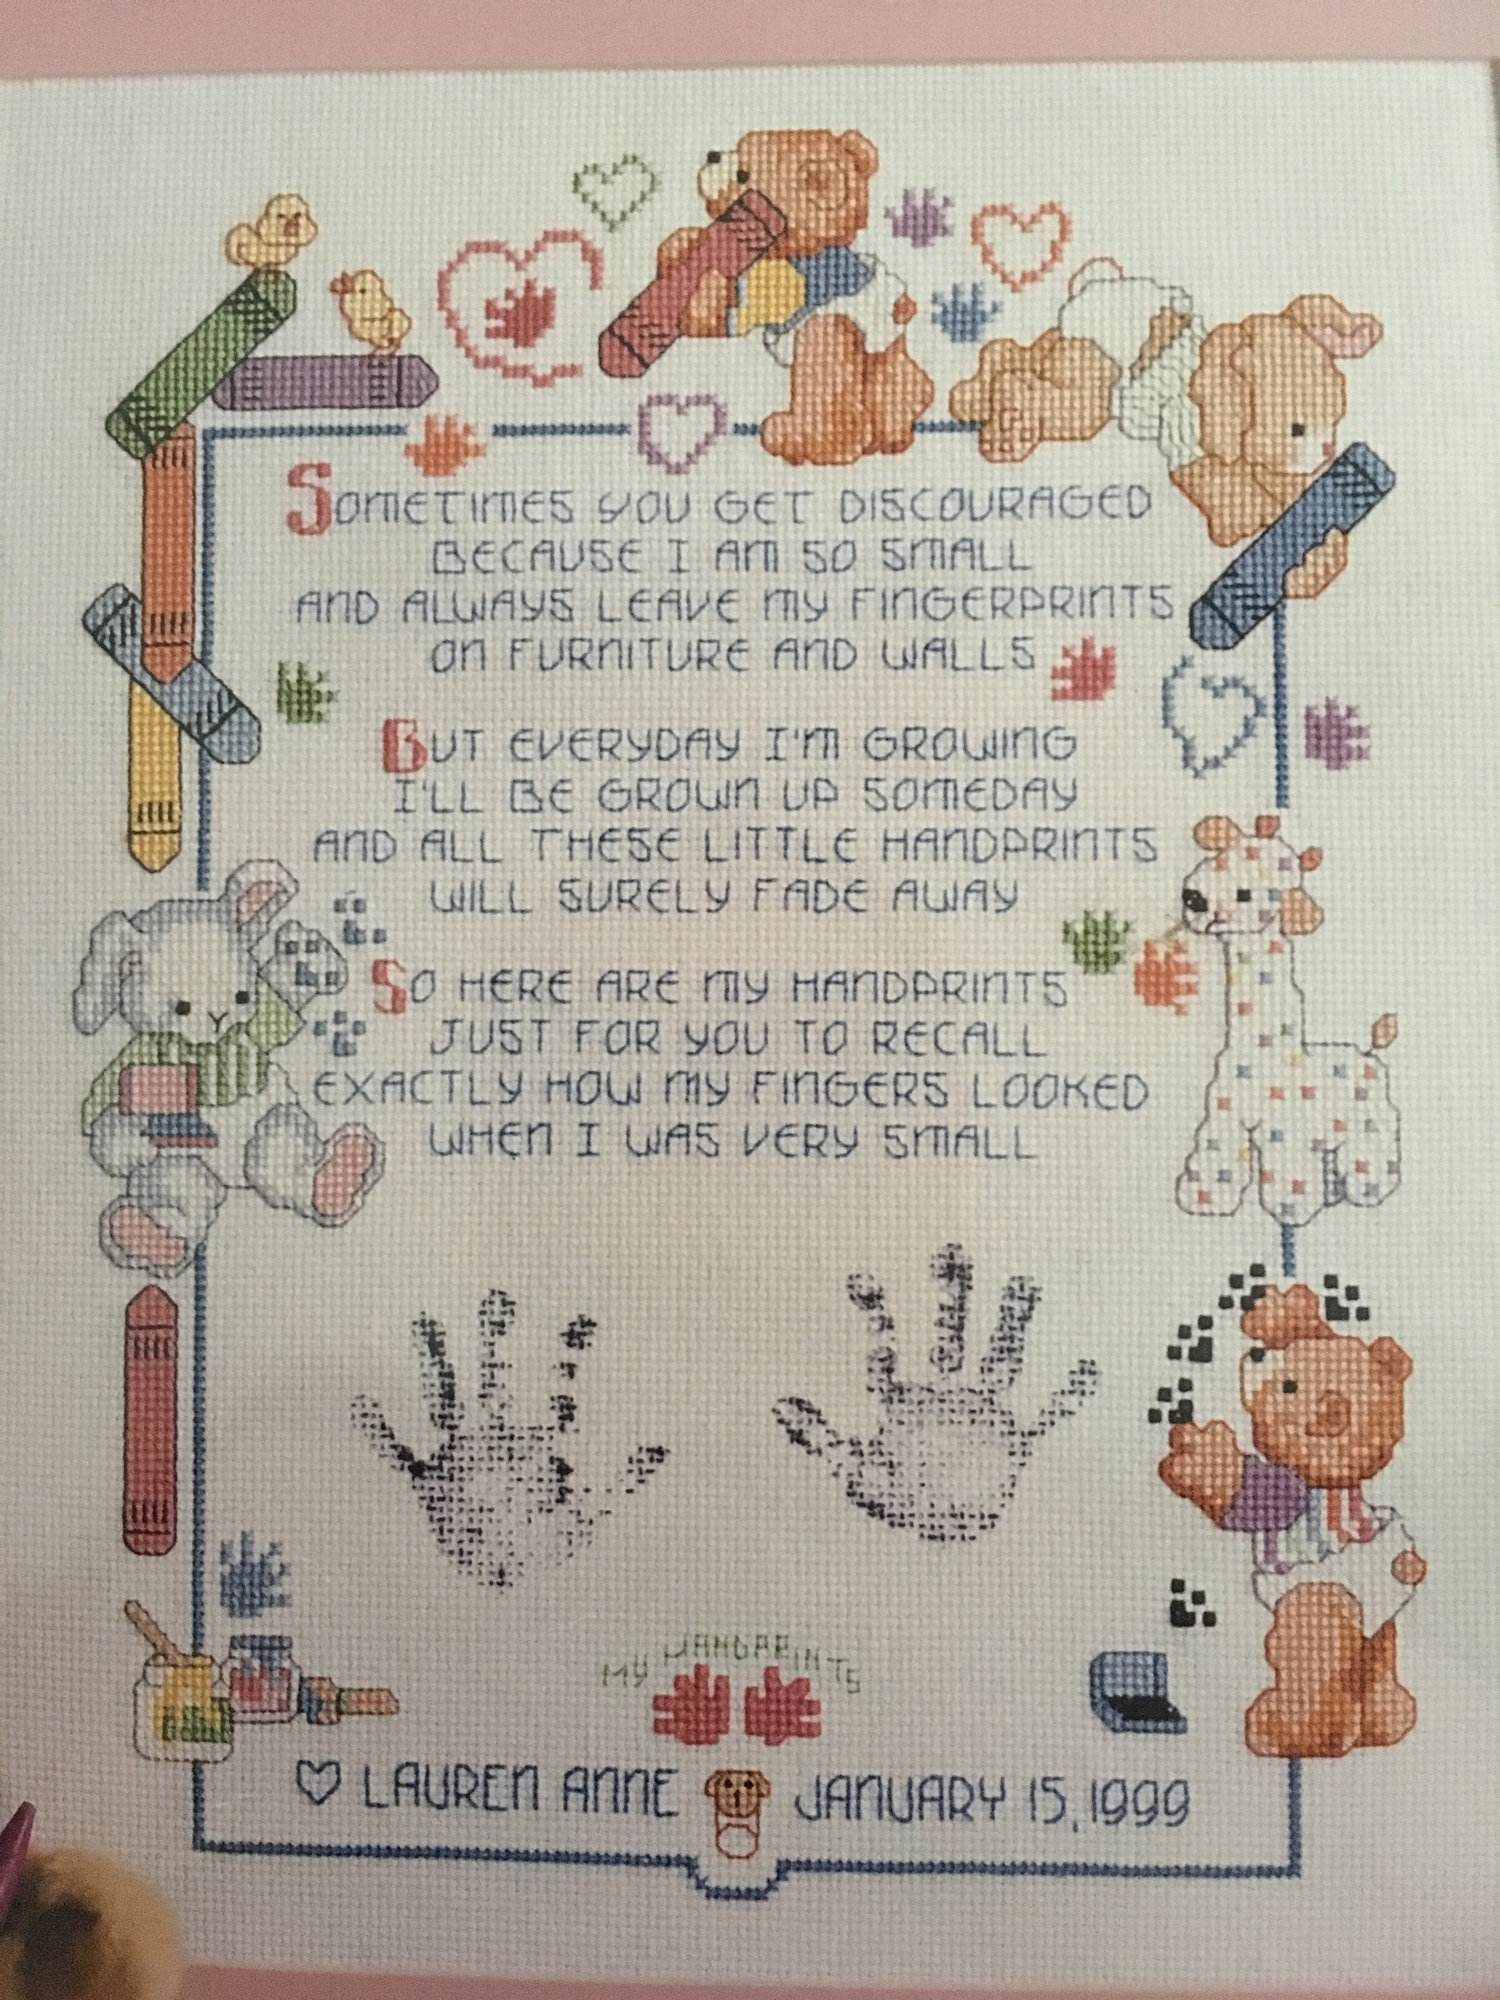 SOMETIMES YOU GET DISCOURAGED
BECAUSE I AM SO SMALL
AND ALWAYS LEAVE MY FINGERPRINTS
ON FURNITURE AND WALLS
BUT EVERYDAY I'M GROWING
I'LL BE GROWN UP SOMEDAY
AND ALL THESE LITTLE HANDPRINTS
WILL SURELY FADE AWAY
SO HERE ARE MY HANDPRINTS
JUST FOR YOU TO RECALL
EXACTLY HOW MY FINGERS LOOKED
WHEN I WAS VERY SMALL
MY HANDPRINTS
♡ LAUREN ANNE JANUARY 15, 1999